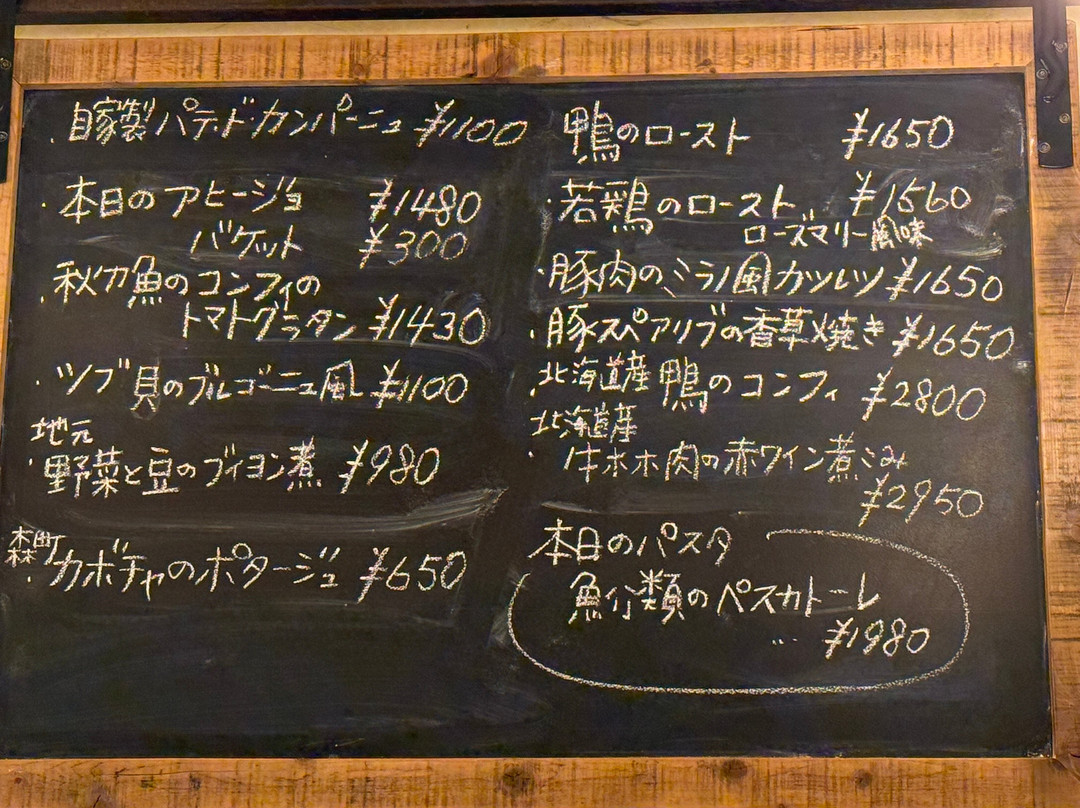 ・自家製パテ・ド・カンパーニュ ¥1100
・本日のアヒージョ ¥1480
バケット ¥300
・秋刀魚のコンフィの
トマトグラタン ¥1430
・ツブ貝のブルゴーニュ風 ¥1100
地元
・野菜と豆のブイヨン煮 ¥980
森町
・カボチャのポタージュ ¥650
鴨のロースト ¥1650
・若鶏のロースト ¥1560
ローズマリー風味
・豚肉のミラノ風カツレツ ¥1650
・豚スペアリブの香草焼き ¥1650
北海道産
・鴨のコンフィ ¥2800
北海道産
・牛ホホ肉の赤ワイン煮こみ
¥2950
本日のパスタ
魚介類のペスカトーレ
... ¥1980